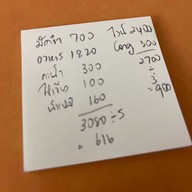 มัดจำ 700
อาหาร 1820
คาเฟ่ 300
น้ำแข็ง 100
160
3080 ÷ 5
= 616
ไวน์ 2400
300
2700
÷
3
= 900